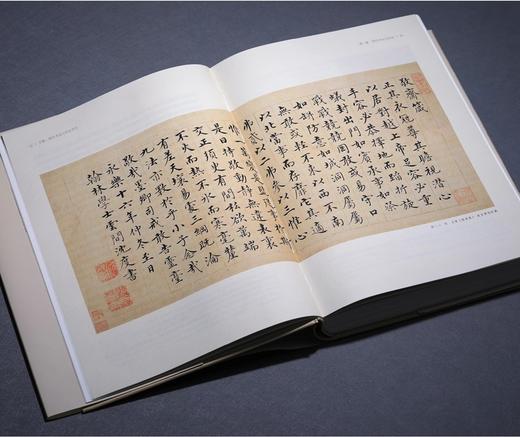 敬齋箴
正其衣冠尊其瞻視潛心
以居對越上帝足容必重
手容必恭擇地而蹈折旋
蟻封出門如賓承事如祭
戰戰兢兢罔敢或易守口
如瓶防意如城洞洞屬屬
無敢或輕不東以西不南
以北當事而存靡它其適
弗貳以二弗參以三惟心
是曰持敬動靜無違表裏
交正須臾有間私欲萬端
不火而熱不冰而寒毫釐
有差天壤易處三綱既淪
九法亦斁於乎小子念哉
敬哉墨卿司戒敢告靈臺
永樂十六年仲冬至日
翰林學士雲間沈度書